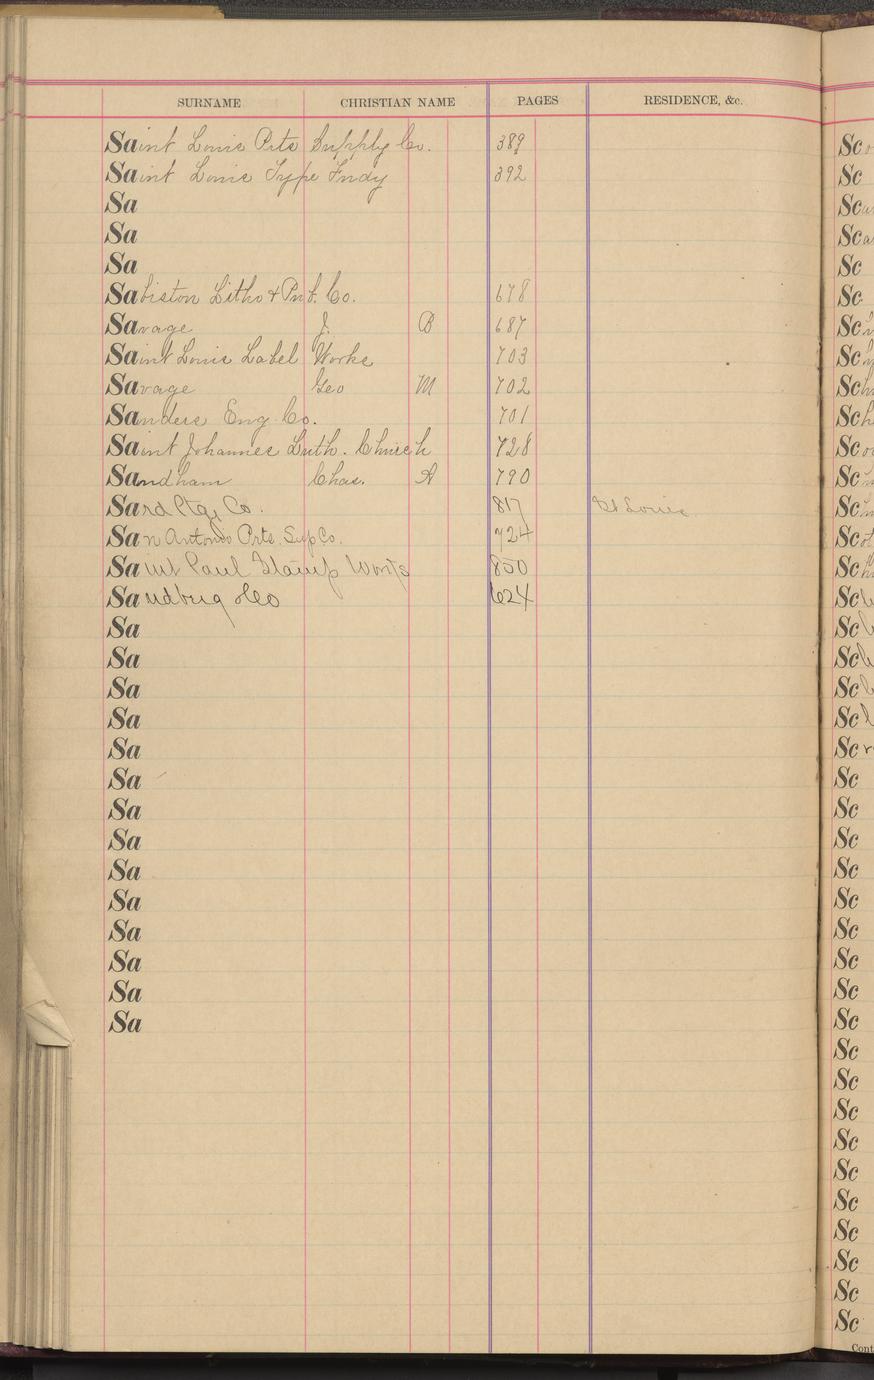 SURNAME CHRISTIAN NAME PAGES RESIDENCE, &c.
Saint Louis Prts Supply Co. 389
Saint Louis Type Fndy 392
Sa
Sa
Sa
Sabiston Litho & Pub. Co. 678
Savage J. B 687
Saint Louis Label Works 703
Savage Geo M 702
Sanders Eng Co. 701
Saint Johannes Luth. Church 728
Sandham Chas. A 790
Sard Ptg. Co. 817 St Louis
San Antonio Prts. Sup Co. 724
Saint Paul Stamp Works 850
Sandburg Geo 624
Sa
Sa
Sa
Sa
Sa
Sa
Sa
Sa
Sa
Sa
Sa
Sa
Sa
Sa
Sc
Sc
Sc
Sc
Sc
Sc
Sc
Sc
Sc
Sc
Sc
Sc
Sc
Sc
Sc
Sc
Sc
Sc
Sc
Sc
Sc
Sc
Sc
Sc
Sc
Sc
Sc
Sc
Sc
Sc
Sc
Sc
Sc
Sc
Sc
Sc
Sc
Sc
Sc
Sc
Cont